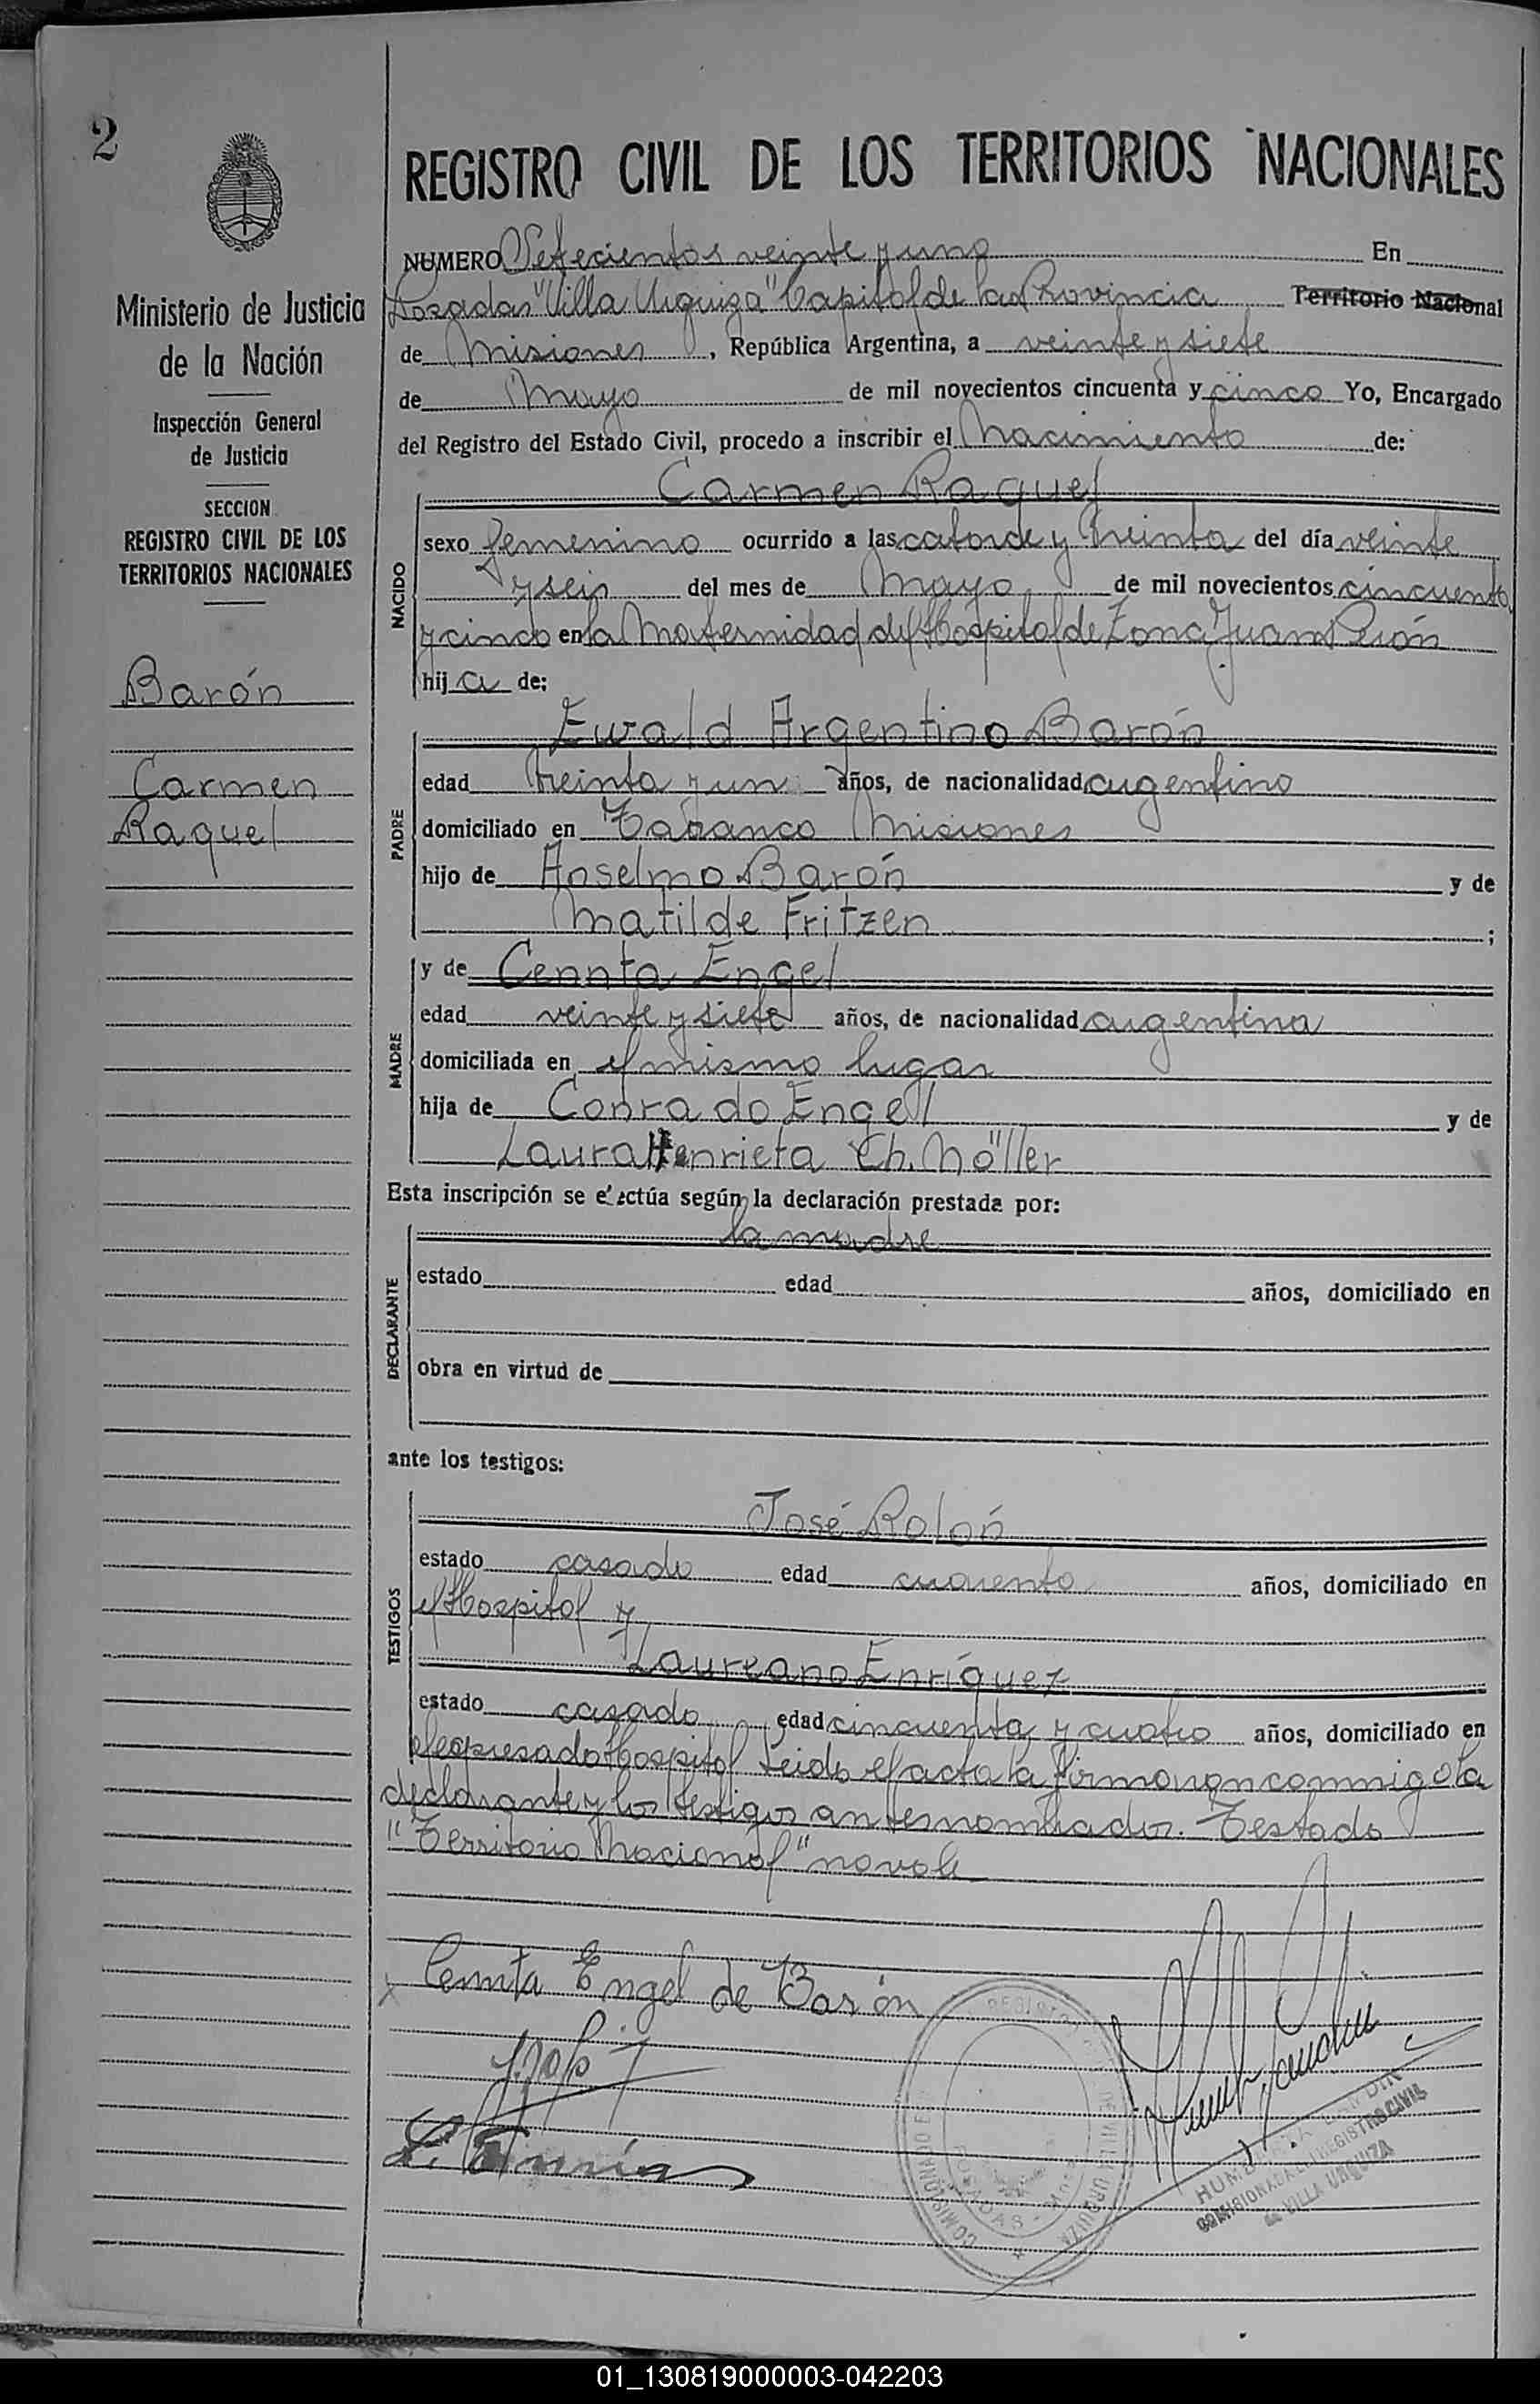 2
REGISTRO CIVIL DE LOS TERRITORIOS NACIONALES
Ministerio de Justicia
de la Nación
Inspección General
de Justicia
SECCION
REGISTRO CIVIL DE LOS
TERRITORIOS NACIONALES
Barón
Carmen
Raquel
NUMERO Setecientos veinte y uno En
Posadas "Villa Urquiza" Capital de la Provincia Territorio Nacional
de Misiones, República Argentina, a veinte y siete
de Mayo de mil novecientos cincuenta y cinco Yo, Encargado
del Registro del Estado Civil, procedo a inscribir el Nacimiento de:
NACIDO
Carmen Raquel
sexo femenino ocurrido a las catorce y treinta del día veinte
y seis del mes de Mayo de mil novecientos cincuenta
y cinco en la Maternidad del Hospital de Zona Juan Perón
hija de:
PADRE
Ewald Argentino Barón
edad treinta y un años, de nacionalidad argentino
domiciliado en Misiones
hijo de Anselmo Barón y de
Matilde Fritzen ;
MADRE
y de Cennta Engel
edad veinte y siete años, de nacionalidad argentina
domiciliada en el mismo lugar
hija de Conrado Engel y de
Laura Henrieta Ch. Möller
Esta inscripción se efectúa según la declaración prestada por:
DECLARANTE
la madre
estado edad años, domiciliado en
obra en virtud de
ante los testigos:
TESTIGOS
José Rolón
estado casado edad cuarenta años, domiciliado en
el Hospital y
Laureano Enríquez
estado casado edad cincuenta y cuatro años, domiciliado en
el expresado Hospital Leida el acta la firmaron conmigo la
declarante y los testigos antes nombrados. Testado
"Territorio Nacional" no vale
Cennta Engel de Barón
REGISTRO DE VILLA URQUIZA
POSADAS
COMISIONADO DEL REGISTRO CIVIL
de VILLA URQUIZA
01_130819000003-042203